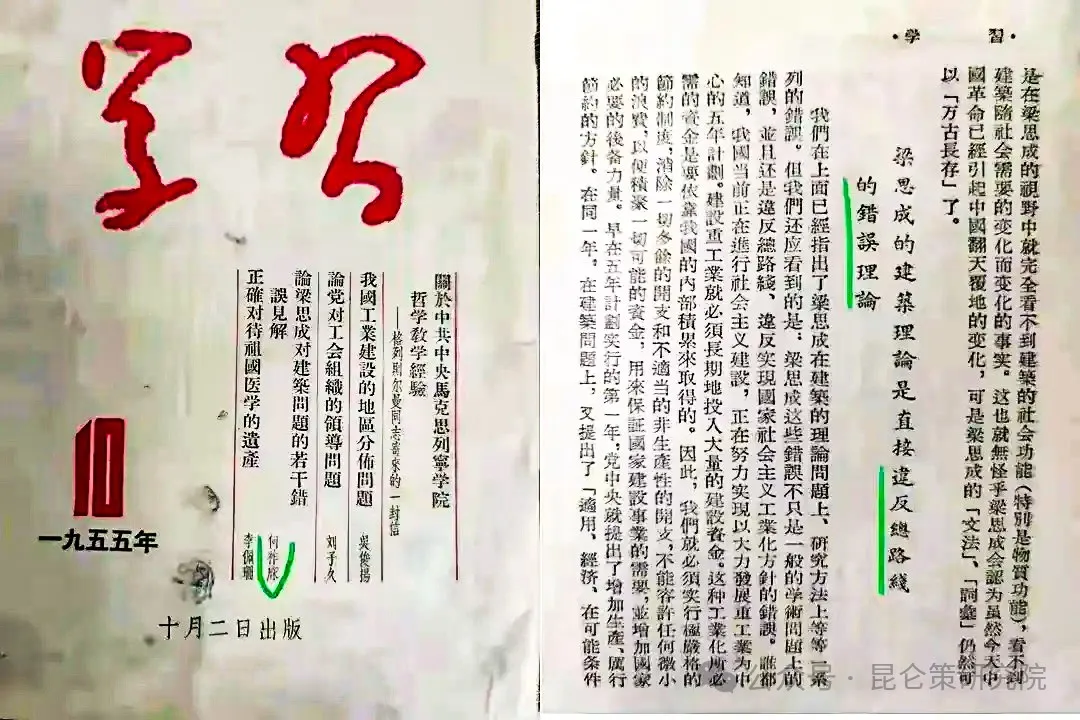 学习
關於中共中央馬克思列寧学院
哲学教学經驗
——格列則尔曼同志寄來的一封信
我國工業建設的地區分佈問題 吳俊揚
論党对工会組織的領導問題 刘子久
論梁思成对建築問題的若干錯
誤見解 何祚庥
正確对待祖國医学的遺產 李佩珊
10
一九五五年
十月二日出版
·学 習·
是在梁思成的視野中就完全看不到建築的社会功能(特別是物質功能),看不到
建築隨社会需要的变化而变化的事实。这也就無怪乎梁思成会認为虽然今天中
國革命已經引起中國翻天覆地的变化,可是梁思成的「文法」、「詞彙」仍然可
以「万古長存」了。
梁思成的建築理論是直接違反總路綫
的錯誤理論
我們在上面已經指出了梁思成在建築的理論問題上、研究方法上等等一系
列的錯誤。但我們还应看到的是,梁思成这些錯誤不只是一般的学術問題上的
錯誤,並且还是違反總路綫、違反实現國家社会主义工業化方針的錯誤。誰都
知道,我國当前正在進行社会主义建設,正在努力实現以大力發展重工業为中
心的五年計劃。建設重工業就必須長期地投入大量的建設資金。这种工業化所必
需的資金是要依靠我國的內部積累來取得的。因此,我們就必須实行極嚴格的
節約制度,消除一切多餘的開支和不適当的非生產性的開支,不能容許任何微小
的浪費,以便積聚一切可能的資金,用來保証國家建設事業的需要,並增加國家
必要的後备力量。早在五年計劃实行的第一年,党中央就提出了增加生產、厲行
節約的方針。在同一年,在建築問題上,又提出了「適用、經济、在可能条件
公众号·昆仑策研究院